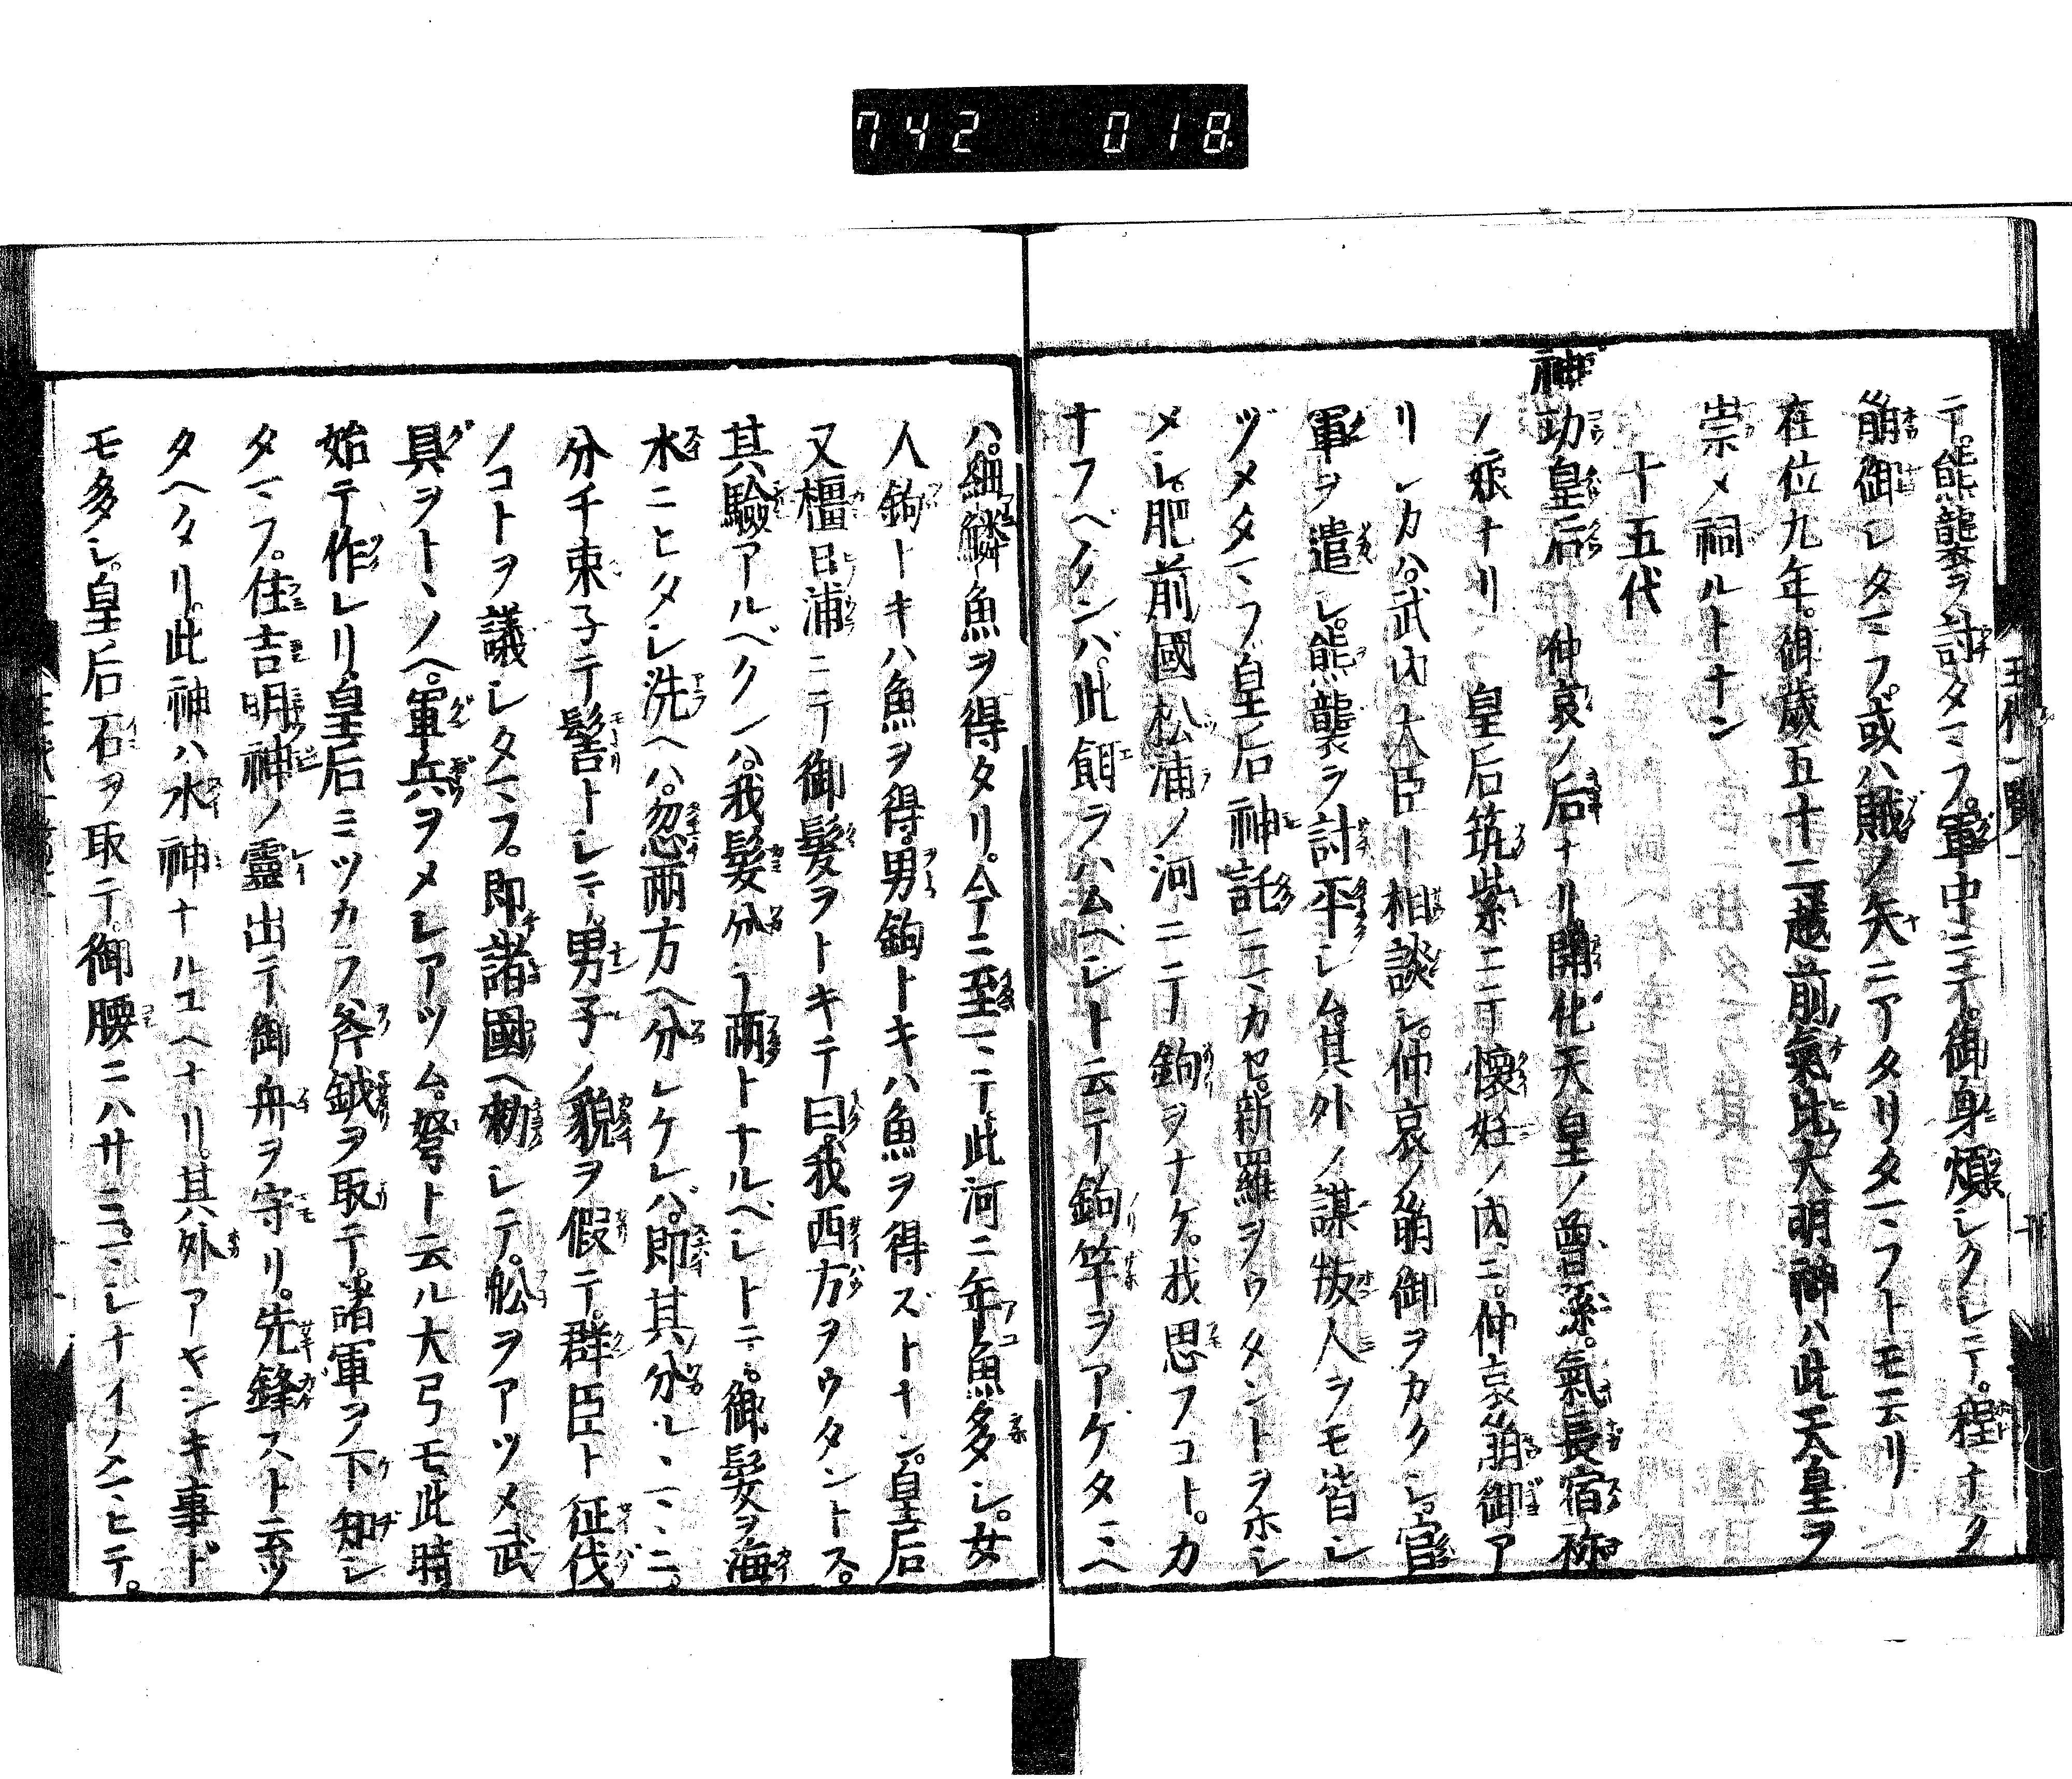 742 018
テ。熊襲ヲ討タマフ。軍中ニテ。御身煩シクシテ。程ナク
崩御シタマフ。或ハ賊ノ矢ニアタリタマフトモ云リ
在位九年。御歳五十二越前氣比大明神ハ此天皇ヲ
崇メ祠ルトナン
十五代
神功皇后 仲哀ノ后ナリ開化天皇ノ曾孫。氣長宿祢
ノ娘ナリ 皇后筑紫ニテ懷妊ノ内ニ。仲哀崩御ア
リシカハ。武内大臣ト相談シ。仲哀ノ崩御ヲカクシ。官
軍ヲ遣シ。熊襲ヲ討平シム其外ノ謀叛人ヲモ皆シ
ヅメタマフ皇后神託ニマカセ。新羅ヲウタントヲホシ
メシ。肥前國松浦ノ河ニテ鉤ヲナケ。我思フコト。カ
ナフベクンバ。此餌ヲハムベシト云テ鉤竿ヲアゲタマヘ
ハ。細鱗魚ヲ得タリ。今ニ至マテ此河ニ年魚多シ。女
人鉤トキハ魚ヲ得。男鉤トキハ魚ヲ得ズトナン。皇后
又橿日浦ニテ御髮ヲトキテ曰。我西方ヲウタントス。
其驗アルベクハ。我髮分テ兩トナルベシトテ。御髮ヲ海
水ニヒタシ洗ヘハ。忽兩方ヘ分レケレバ。即其分レノマヽニ。
分千束子テ髻トシテ。男子ノ貌ヲ假テ。群臣ト征伐
ノコトヲ議シタマフ。即諸國ヘ勅シテ。舩ヲアツメ武
具ヲトヽノヘ。軍兵ヲメシアツム。弩ト云ル大弓モ此時
始テ作レリ。皇后ミツカラ斧鉞ヲ取テ。諸軍ヲ下知シ
タマフ。住吉明神ノ靈出テ御舟ヲ守リ。先鋒ストモ云ツ
タヘタリ。此神ハ水神ナルユヘナリ。其外アヤシキ事ド
モ多シ。皇后石ヲ取テ。御腰ニハサミ。マシナイノタマヒテ。